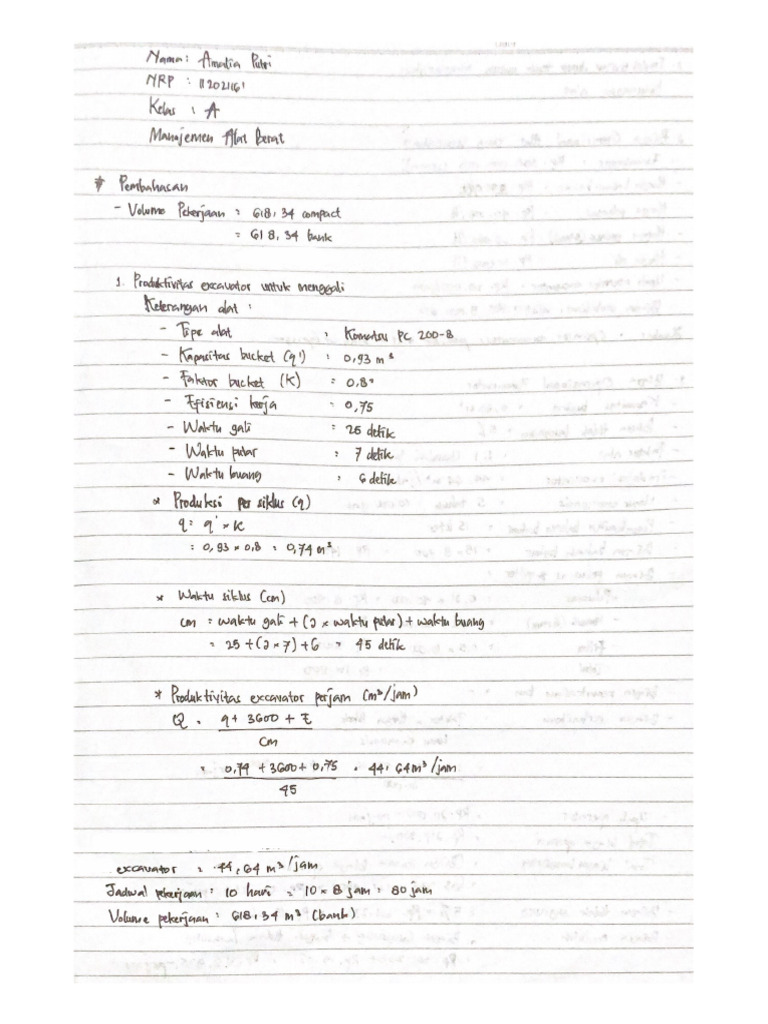 Nama : Amalia Putri
NRP : 11202161
Kelas : A
Manajemen Alat Berat
* Pembahasan
- Volume Pekerjaan = 618,34 compact
= 618,34 bank
1. Produktivitas excavator untuk menggali
Keterangan alat :
- Tipe alat : Komatsu PC 200-8
- Kapasitas bucket (q') : 0,93 m³
- Faktor bucket (K) : 0,8
- Efisiensi kerja : 0,75
- Waktu gali : 25 detik
- Waktu putar : 7 detik
- Waktu buang : 6 detik
* Produksi per siklus (q)
q = q' × K
= 0,93 × 0,8 = 0,74 m³
* Waktu siklus (cm)
cm = waktu gali + (2 × waktu putar) + waktu buang
= 25 + (2 × 7) + 6 = 45 detik
* Produktivitas excavator perjam (m³/jam)
Q = q + 3600 + E
cm
= 0,74 + 3600 + 0,75 = 44,64 m³/jam
45
excavator = 44,64 m³/jam
Jadwal pekerjaan : 10 hari = 10 × 8 jam = 80 jam
Volume pekerjaan : 618,34 m³ (bank)